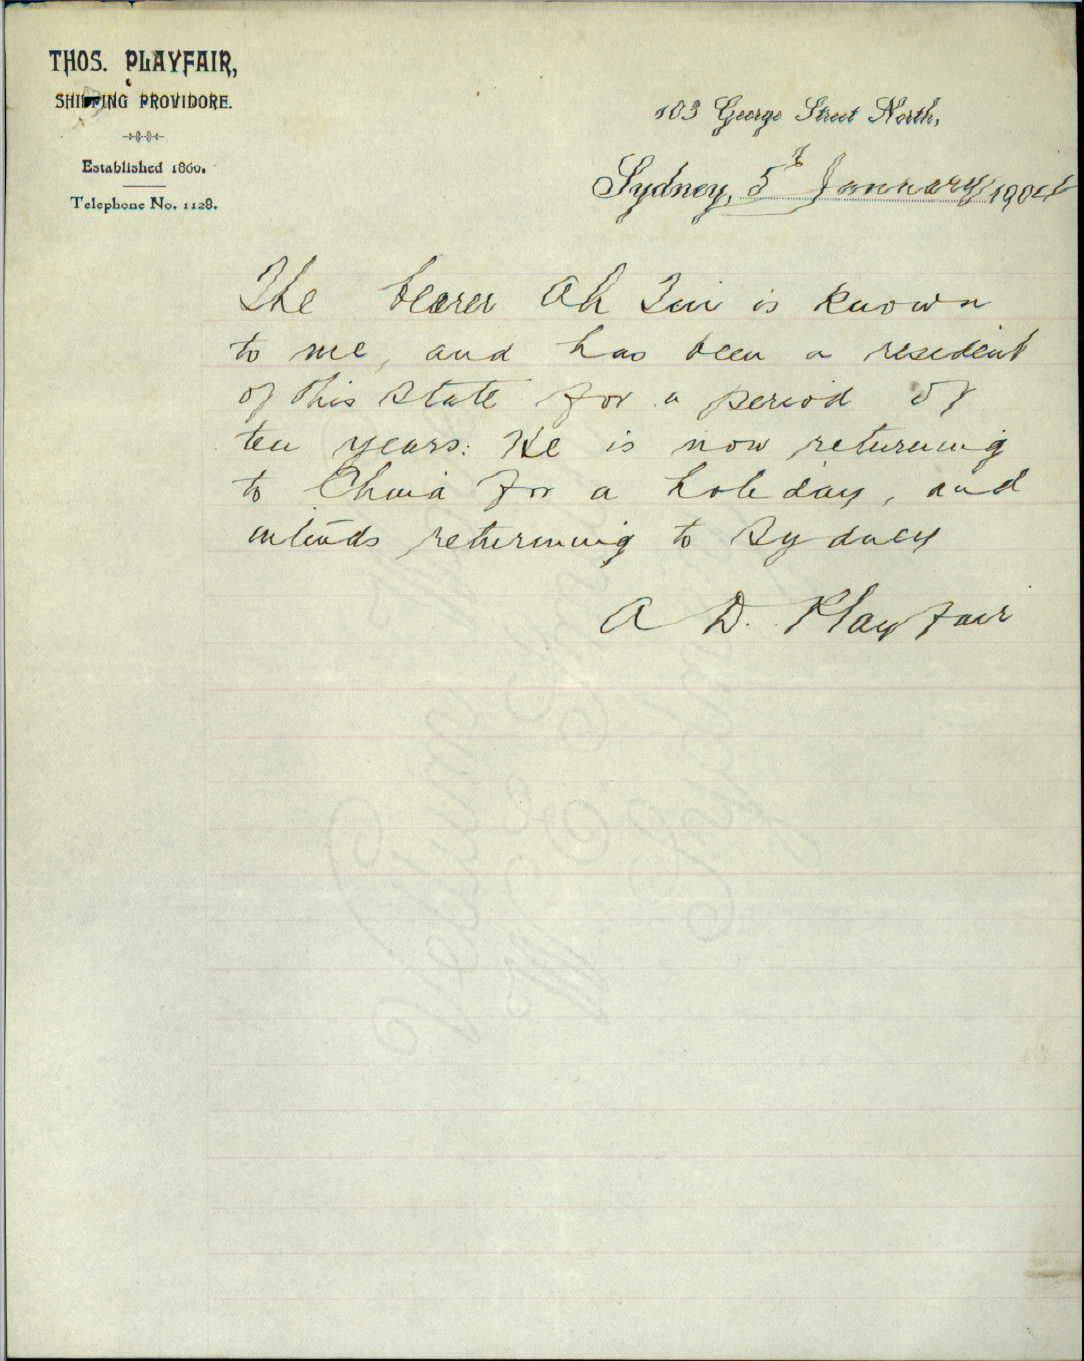 THOS. PLAYFAIR,
SHIPPING PROVIDORE.
Established 1860.
Telephone No. 1128.
103 George Street North,
Sydney, 5th January 1904
The bearer Ah is known
to me, and has been a resident
of this State for a period of
ten years: He is now returning
to China for a holiday, and
intends returning to Sydney
A D. Playfair